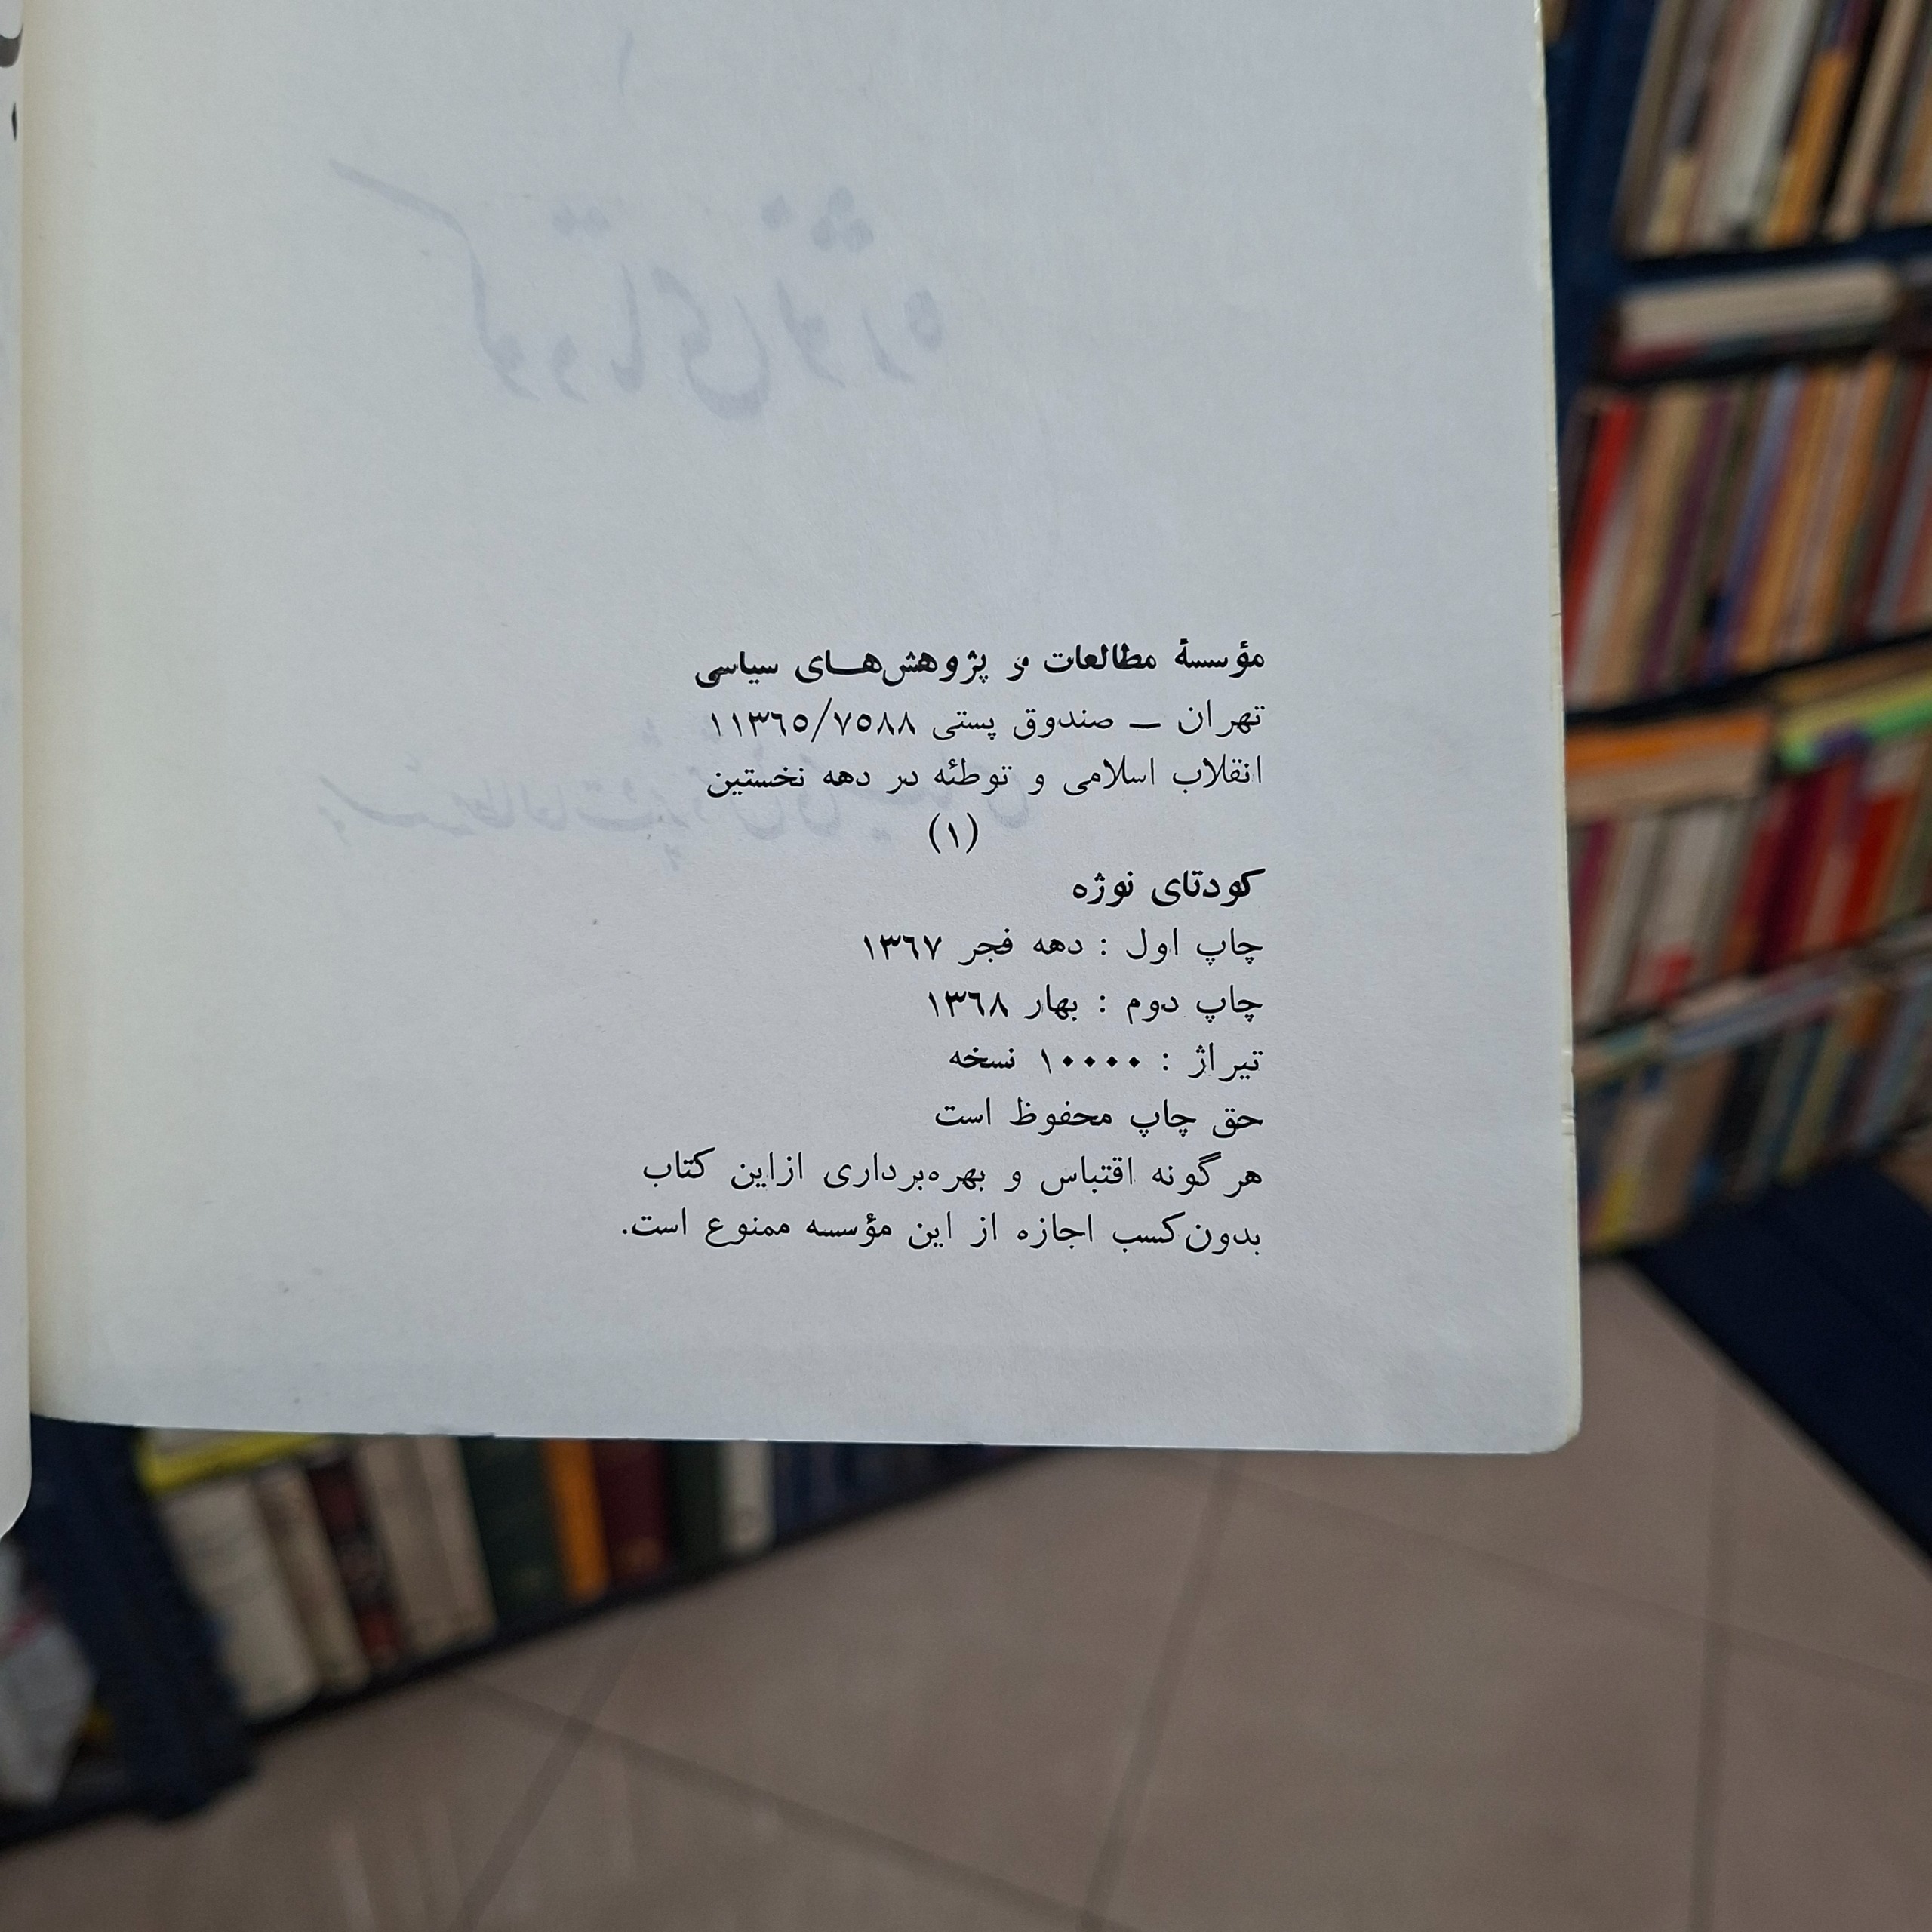 مؤسسهٔ مطالعات و پژوهش‌های سیاسی
تهران — صندوق پستی ۱۱۳٦٥/۷٥۸۸
انقلاب اسلامی و توطئه در دهه نخستین
(۱)
کودتای نوژه
چاپ اول : دهه فجر ۱۳٦۷
چاپ دوم : بهار ۱۳٦۸
تیراژ : ۱۰۰۰۰ نسخه
حق چاپ محفوظ است
هرگونه اقتباس و بهره‌برداری ازاین کتاب
بدون‌کسب اجازه از این مؤسسه ممنوع است.